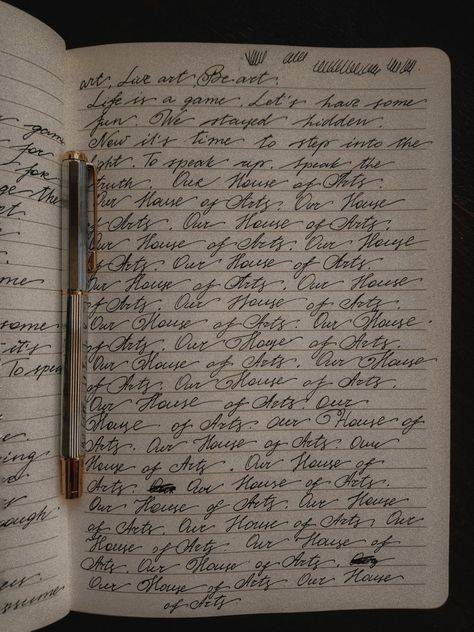 game
for
for
the
some
it's
To
art. Live art. Be art.
Life is a game. Let's have some
fun. We stayed hidden.
Now it's time to step into the
ght. To speak up. Speak the
ruth. Our House of Arts.
Our House of Arts. Our House
of Arts. Our House of Arts.
Our House of Arts. Our House
of Arts. Our House of Arts.
Our House of Arts. Our House
of Arts. Our House of Arts.
Our House of Arts. Our House
of Arts. Our House of Arts.
Our House of Arts. Our House
of Arts. Our House of Arts.
Our House of Arts. Our
House of Arts. Our House of
Arts. Our House of Arts. Our
House of Arts. Our House of
Arts. Our House of Arts.
Our House of Arts. Our House
of Arts. Our House of Arts. Our
House of Arts. Our House of
Arts. Our House of Arts.
Our House of Arts. Our House
of Arts